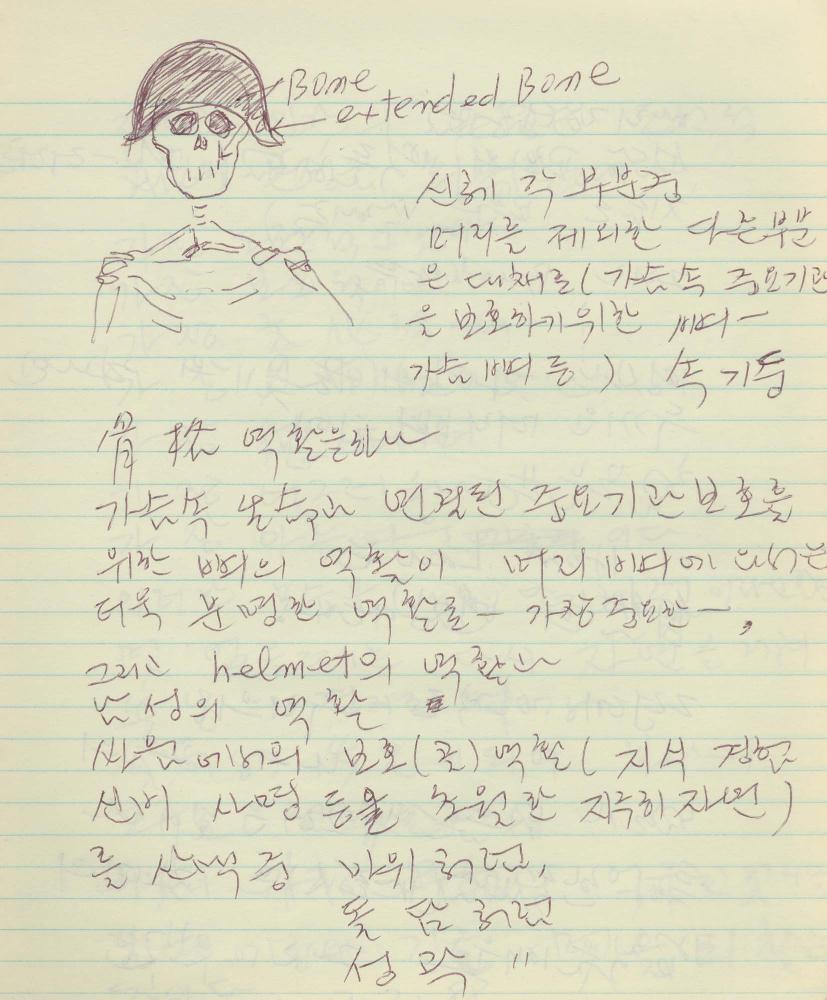 Bone
extended Bone
신체 각 부분중
머리를 제외한 다른 부분
은 대체로 (가슴속 주요기관
을 보호하기위한 뼈-
가슴뼈등) 속 기둥
骨格 역활을하나
가슴속 생습과 연결된 주요기관 보호를
위한 뼈의 역활이 머리 뼈에 와서는
더욱 분명한 역활로 - 가장 중요한 -,
그리고 helmet의 역활과
남성의 역활
싸움에서의 보호(곳) 역활 (지식 경험
선비 사명 등을 초월한 지극히 자연)
를 산맥중 바위처럼,
돌담처럼
성곽 〃